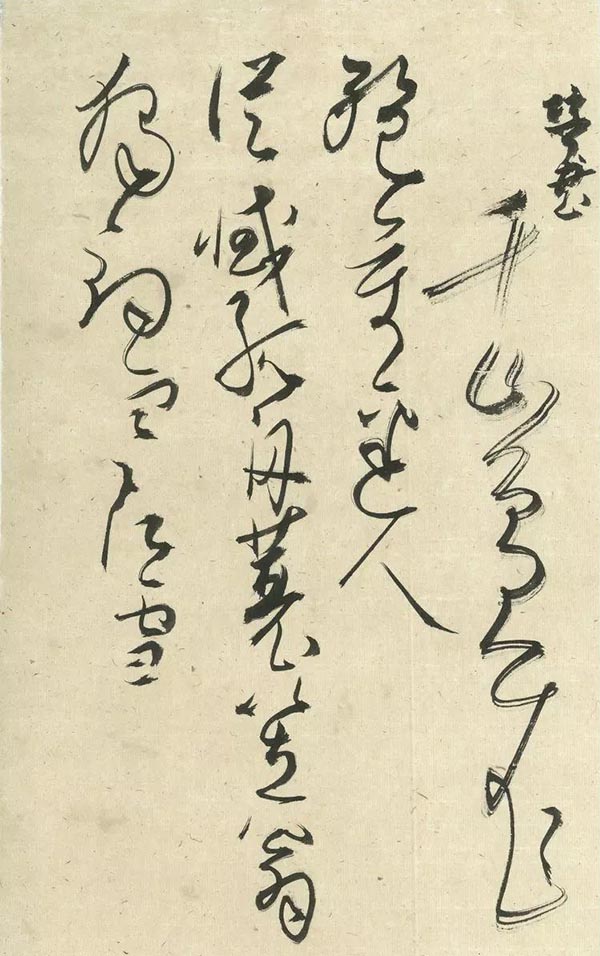 千山鳥飛
絕萬逕人
蹤滅孤舟蓑笠翁
獨釣寒江雪